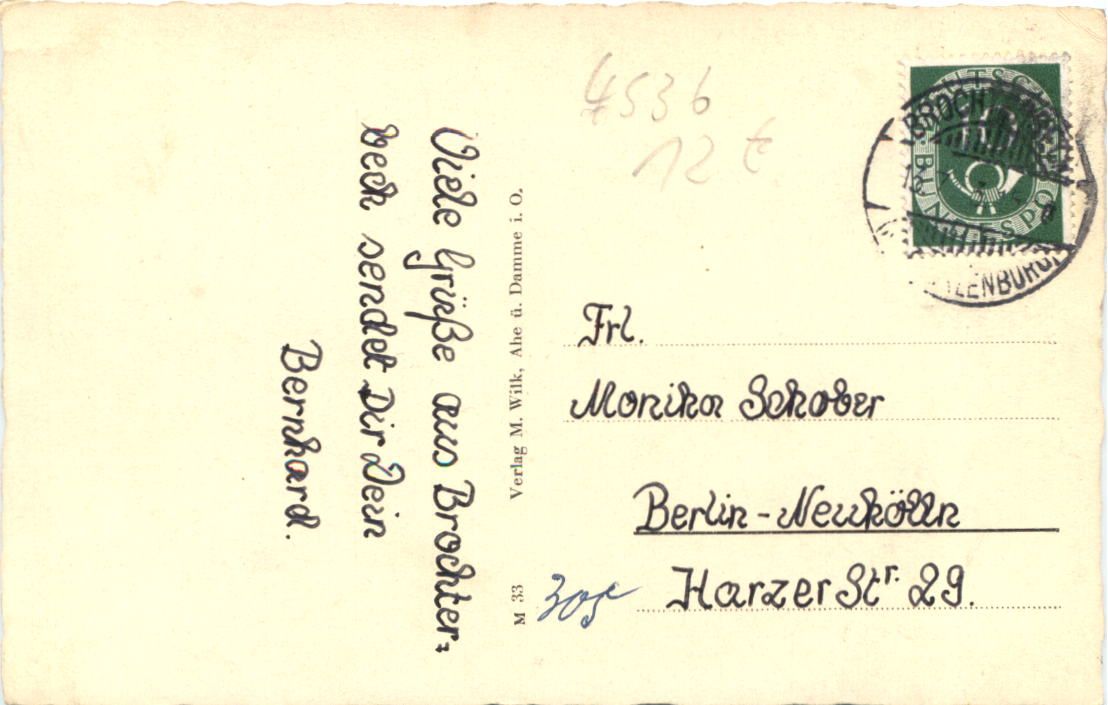 4536
12 €
Viele Grüße aus Brochter=
beck sendet Dir Dein
Bernhard.
Verlag M. Wilk, Ahe ü. Damme i. O.
M 33
Frl.
Monika Schober
Berlin-Neukölln
Harzer Str. 29.